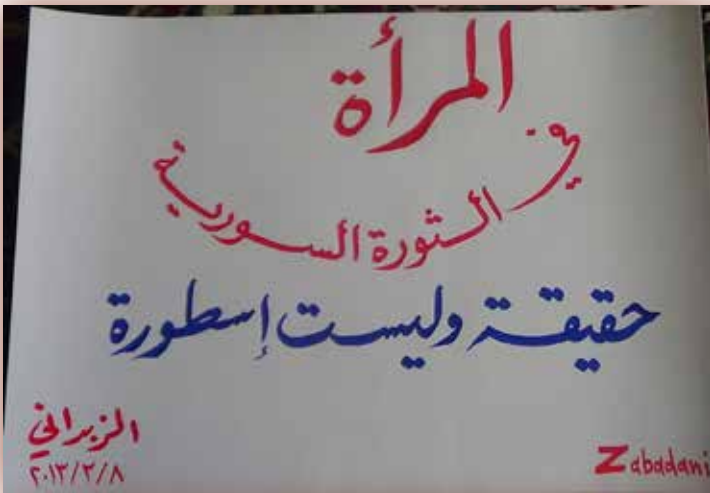 المرأة
في الثورة السورية
حقيقة وليست إسطورة
الزبداني
٢٠١٣/٣/٨
Zabadani